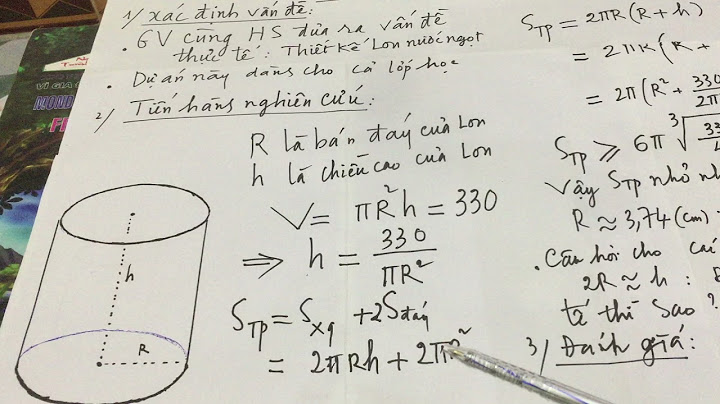 1/ Xác định vấn đề:
. GV cùng HS đưa ra vấn đề
thực tế: Thiết kế Lon nước ngọt
. Dự án này dành cho cả lớp học
2/ Tiến hành nghiên cứu:
R là bán đáy của Lon
h là chiều cao của Lon
V = πR²h = 330
⇒ h = 330/πR²
S_TP = S_xq + 2S_đáy
= 2πRh + 2πR²
h
R
S_TP = 2πR(R + h)
= 2πR(R +
= 2π(R² + 330
S_TP ≥ 6π ∛
Vậy S_TP nhỏ
R ≈ 3,74 (cm)
. Câu hỏi cho
2R ≈ h :
tế thì sao ?
3/ Đánh giá: